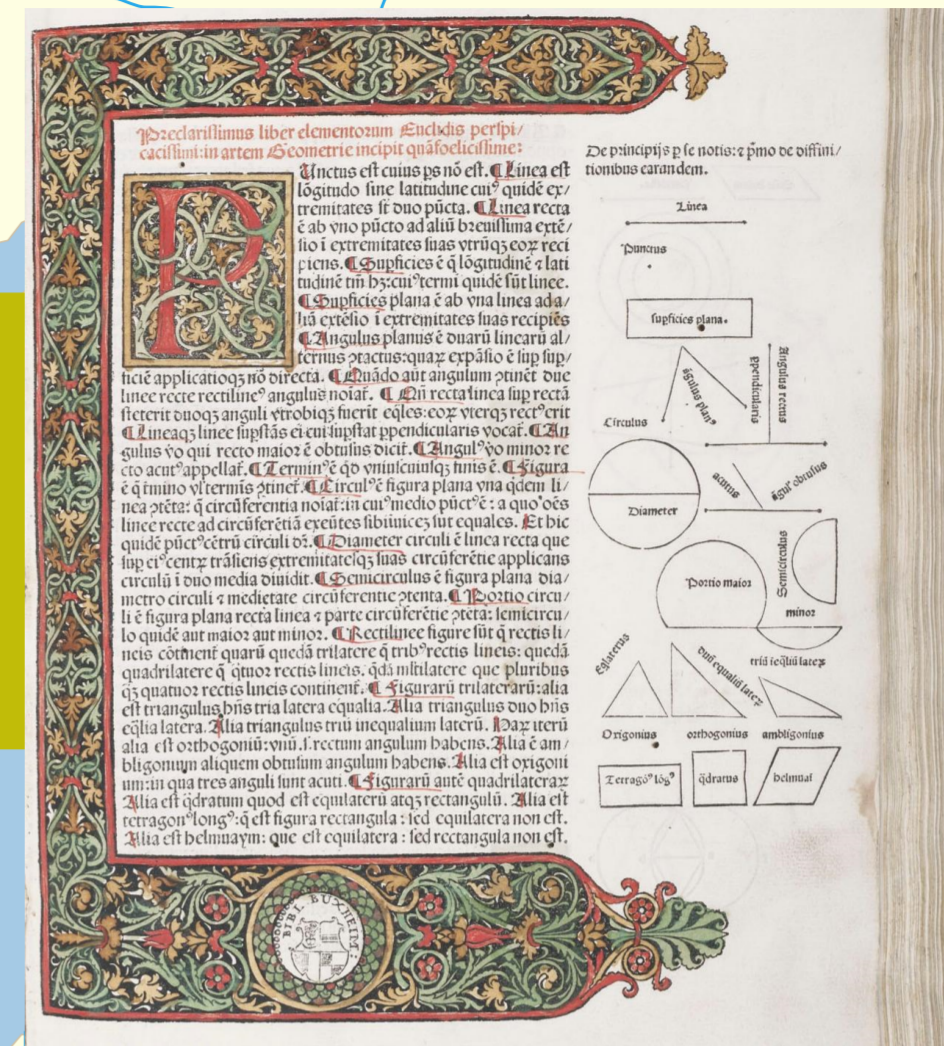 Preclarissimus liber elementorum Euclidis perspi/
cacissimi: in artem Geometrie incipit quãfoelicissime:
P
Unctus est cuius ps nõ est. ¶ Linea est
lõgitudo sine latitudine cuiꝰ quidẽ ex/
tremitates st̃ duo pũcta. ¶ Linea recta
ẽ ab vno pũcto ad aliũ breuissima extẽ/
sio ĩ extremitates suas vtrũqꝫ eoꝝ reci
piens. ¶ Supficies ẽ q̃ lõgitudinẽ ⁊ lati
tudinẽ tm̃ hꝫ: cuiꝰ termi quidẽ sũt linee.
¶ Supficies plana ẽ ab vna linea ad a/
liã extẽsio ĩ extremitates suas recipiẽs
¶ Angulus planus ẽ duarũ linearũ al/
ternus ꝯtactus: quaꝝ expãsio ẽ sup sup/
ficiẽ applicatioqꝫ nõ directa. ¶ Quãdo aũt angulum ꝯtinẽt due
linee recte rectilineꝰ angulus noiat̃. ¶ Qñ recta linea sup rectã
steterit duoqꝫ anguli vtrobiqꝫ fuerit eq̃les: eoꝝ vterqꝫ rectꝰ erit
¶ Lineaqꝫ linee supstãs ei cui supstat ppendicularis vocat̃. ¶ An
gulus ṽo qui recto maior ẽ obtusus dicit̃. ¶ Angulꝰ ṽo minor re
cto acutꝰ appellat̃. ¶ Terminꝰ ẽ qď vniuscuiusqꝫ finis ẽ. ¶ Figura
ẽ q̃ t̃mino vl̃ termis ꝯtinet̃. ¶ Circulꝰ ẽ figura plana vna q̃dem li/
nea ꝯtẽta: q̃ circũferentia noiat̃: in cuiꝰ medio pũctꝰ ẽ: a quoꝰ oẽs
linee recte ad circũferẽtiã exeũtes sibiinuicẽꝫ sut equales. Et hic
quidẽ pũctꝰ cẽtrũ circuli dr̃. ¶ Diameter circuli ẽ linea recta que
sup eiꝰ centꝝ trãsiens extremitatesqꝫ suas circũferẽtie applicans
circulũ ĩ duo media diuidit. ¶ Semicirculus ẽ figura plana dia/
metro circuli ⁊ medietate circũferentie ꝯtenta. ¶ Portio circu/
li ẽ figura plana recta linea ⁊ parte circũferẽtie ꝯtẽta: semicircu/
lo quidẽ aut maior aut minor. ¶ Rectilinee figure sũt q̃ rectis li/
neis cõtinent̃ quarũ quedã trilatere q̃ tribꝰ rectis lineis: quedã
quadrilatere q̃ q̃tuor rectis lineis. q̃dã mltilatere que pluribus
q̃ꝫ quatuor rectis lineis continent̃. ¶ Figurarũ trilaterarũ: alia
est triangulus hñs tria latera equalia. Alia triangulus duo hñs
eq̃lia latera. Alia triangulus triũ inequalium laterũ. Haꝝ iterũ
alia est orthogoniũ: vnũ .s. rectum angulum habens. Alia ẽ am/
bligonium aliquem obtusum angulum habens. Alia est oxigoni
um: in qua tres anguli sunt acuti. ¶ Figurarũ autẽ quadrilateraꝝ
Alia est q̃dratum quod est equilaterũ atqꝫ rectangulũ. Alia est
tetragonꝰ longꝰ: q̃ est figura rectangula: sed equilatera non est.
Alia est helmuaym: que est equilatera: sed rectangula non est.
BIBL. BUXHEIM:
De principijs p se notis: ⁊ pm̃o de diffini/
tionibus earundem.
Linea
Punctus
supficies plana.
ãgulus planꝰ
ppendicularis
Angulus rectus
Circulus
Diameter
acutus
ãgulꝰ obtusus
Portio maior
Semicirculus
minor
Eq̃laterus
duũ equaliũ lateꝝ
triũ ieq̃liũ lateꝝ
Oxigonius
orthogonius
ambligonius
Tetragõꝰ lõgꝰ
q̃dratus
helmuai